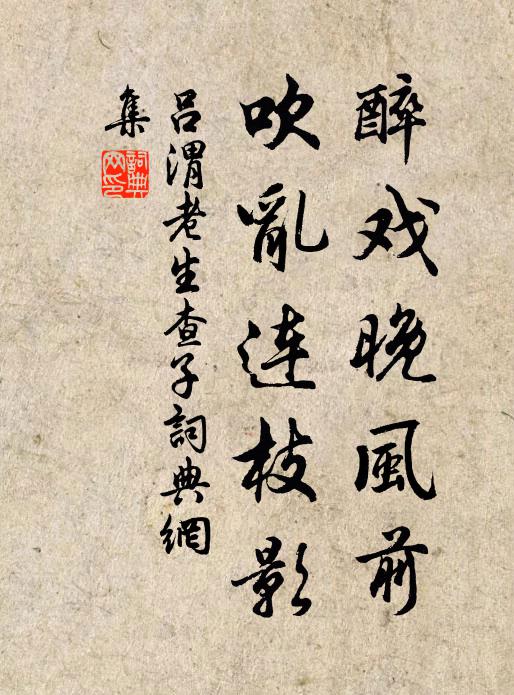 醉戏晚風前
吹亂连枝影
吕渭老生查子詞典網
集
詞典网印